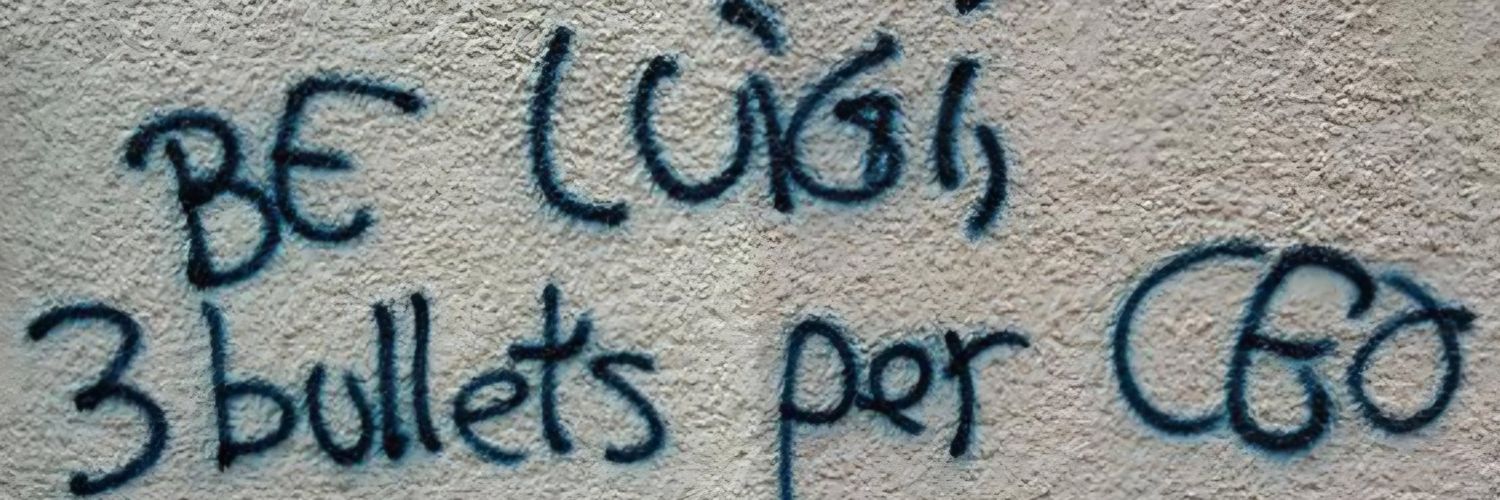 BE LUiGi,
3 bullets per CEO